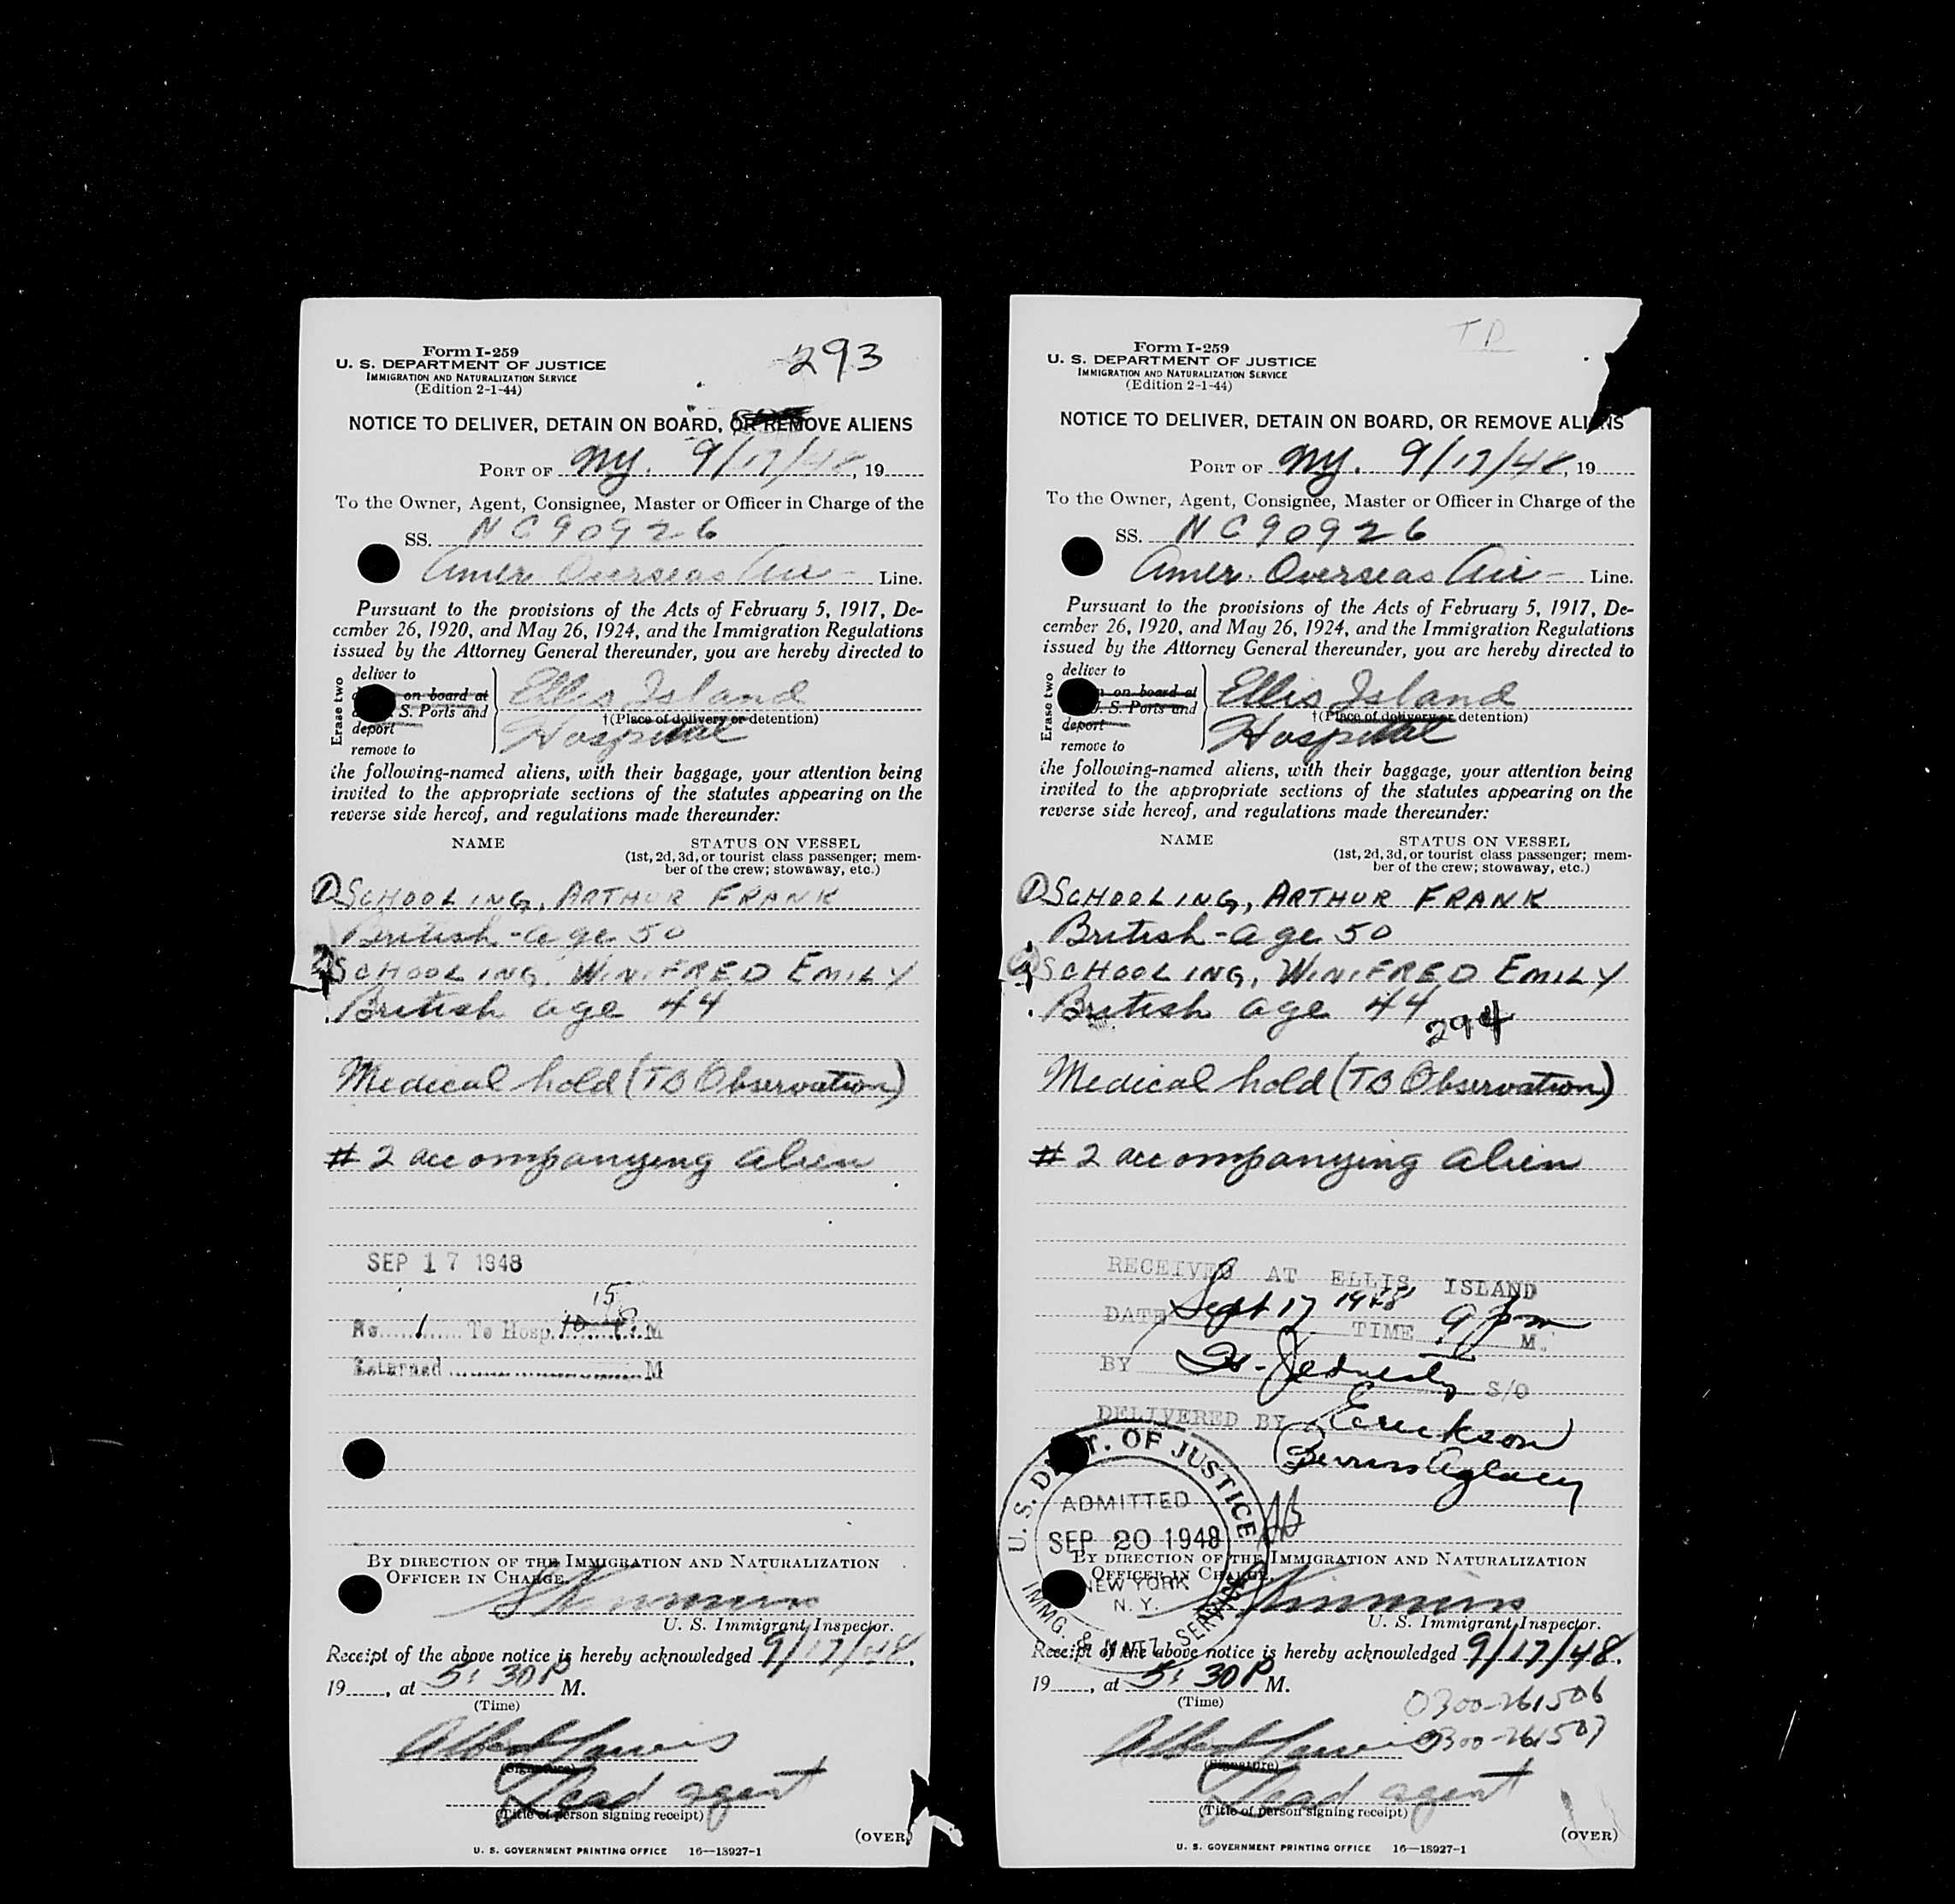 Form I-259
U. S. DEPARTMENT OF JUSTICE
IMMIGRATION AND NATURALIZATION SERVICE
(Edition 2-1-44)
293
NOTICE TO DELIVER, DETAIN ON BOARD, OR REMOVE ALIENS
PORT OF NY. 9/17/48, 19
To the Owner, Agent, Consignee, Master or Officer in Charge of the
SS. NC90926
Amer. Overseas Air Line.
Pursuant to the provisions of the Acts of February 5, 1917, De-
cember 26, 1920, and May 26, 1924, and the Immigration Regulations
issued by the Attorney General thereunder, you are hereby directed to
Erase two
deliver to
on board at
S. Ports and
deport
remove to
Ellis Island
†(Place of delivery or detention)
Hospital
the following-named aliens, with their baggage, your attention being
invited to the appropriate sections of the statutes appearing on the
reverse side hereof, and regulations made thereunder:
NAME
STATUS ON VESSEL
(1st, 2d, 3d, or tourist class passenger; mem-
ber of the crew; stowaway, etc.)
① SCHOOLING, ARTHUR FRANK
British - age 50
② SCHOOLING, WINIFRED EMILY
British age 44
Medical hold (TB Observation)
# 2 accompanying alien
SEP 17 1948
15
No. 1 To Hosp. 10 P. M
Returned M
BY DIRECTION OF THE IMMIGRATION AND NATURALIZATION
OFFICER IN CHARGE.
U. S. Immigrant Inspector.
Receipt of the above notice is hereby acknowledged 9/17/48.
19, at 5:30 P M.
(Time)
(Signature)
Lead agent
(Title of person signing receipt)
(OVER)
U. S. GOVERNMENT PRINTING OFFICE 16—18927-1
Form I-259
U. S. DEPARTMENT OF JUSTICE
IMMIGRATION AND NATURALIZATION SERVICE
(Edition 2-1-44)
NOTICE TO DELIVER, DETAIN ON BOARD, OR REMOVE ALIENS
PORT OF NY. 9/17/48, 19
To the Owner, Agent, Consignee, Master or Officer in Charge of the
SS. NC90926
Amer. Overseas Air Line.
Pursuant to the provisions of the Acts of February 5, 1917, De-
cember 26, 1920, and May 26, 1924, and the Immigration Regulations
issued by the Attorney General thereunder, you are hereby directed to
Erase two
deliver to
on board at
S. Ports and
deport
remove to
Ellis Island
†(Place of delivery or detention)
Hospital
the following-named aliens, with their baggage, your attention being
invited to the appropriate sections of the statutes appearing on the
reverse side hereof, and regulations made thereunder:
NAME
STATUS ON VESSEL
(1st, 2d, 3d, or tourist class passenger; mem-
ber of the crew; stowaway, etc.)
① SCHOOLING, ARTHUR FRANK
British - age 50
② SCHOOLING, WINIFRED EMILY
British age 44
294
Medical hold (TB Observation)
# 2 accompanying alien
RECEIVED AT ELLIS ISLAND
DATE Sept 17 1948 TIME 9 pm M.
BY S/O
DELIVERED BY Erickson
U. S. DEPT. OF JUSTICE
ADMITTED
SEP 20 1948
NEW YORK
N. Y.
IMMG. & NATZ. SERVICE
BY DIRECTION OF THE IMMIGRATION AND NATURALIZATION
OFFICER IN CHARGE.
U. S. Immigrant Inspector.
Receipt of the above notice is hereby acknowledged 9/17/48.
19, at 5:30 P M.
(Time)
0300-261506
0300-261507
(Signature)
Lead agent
(Title of person signing receipt)
(OVER)
U. S. GOVERNMENT PRINTING OFFICE 16—18927-1